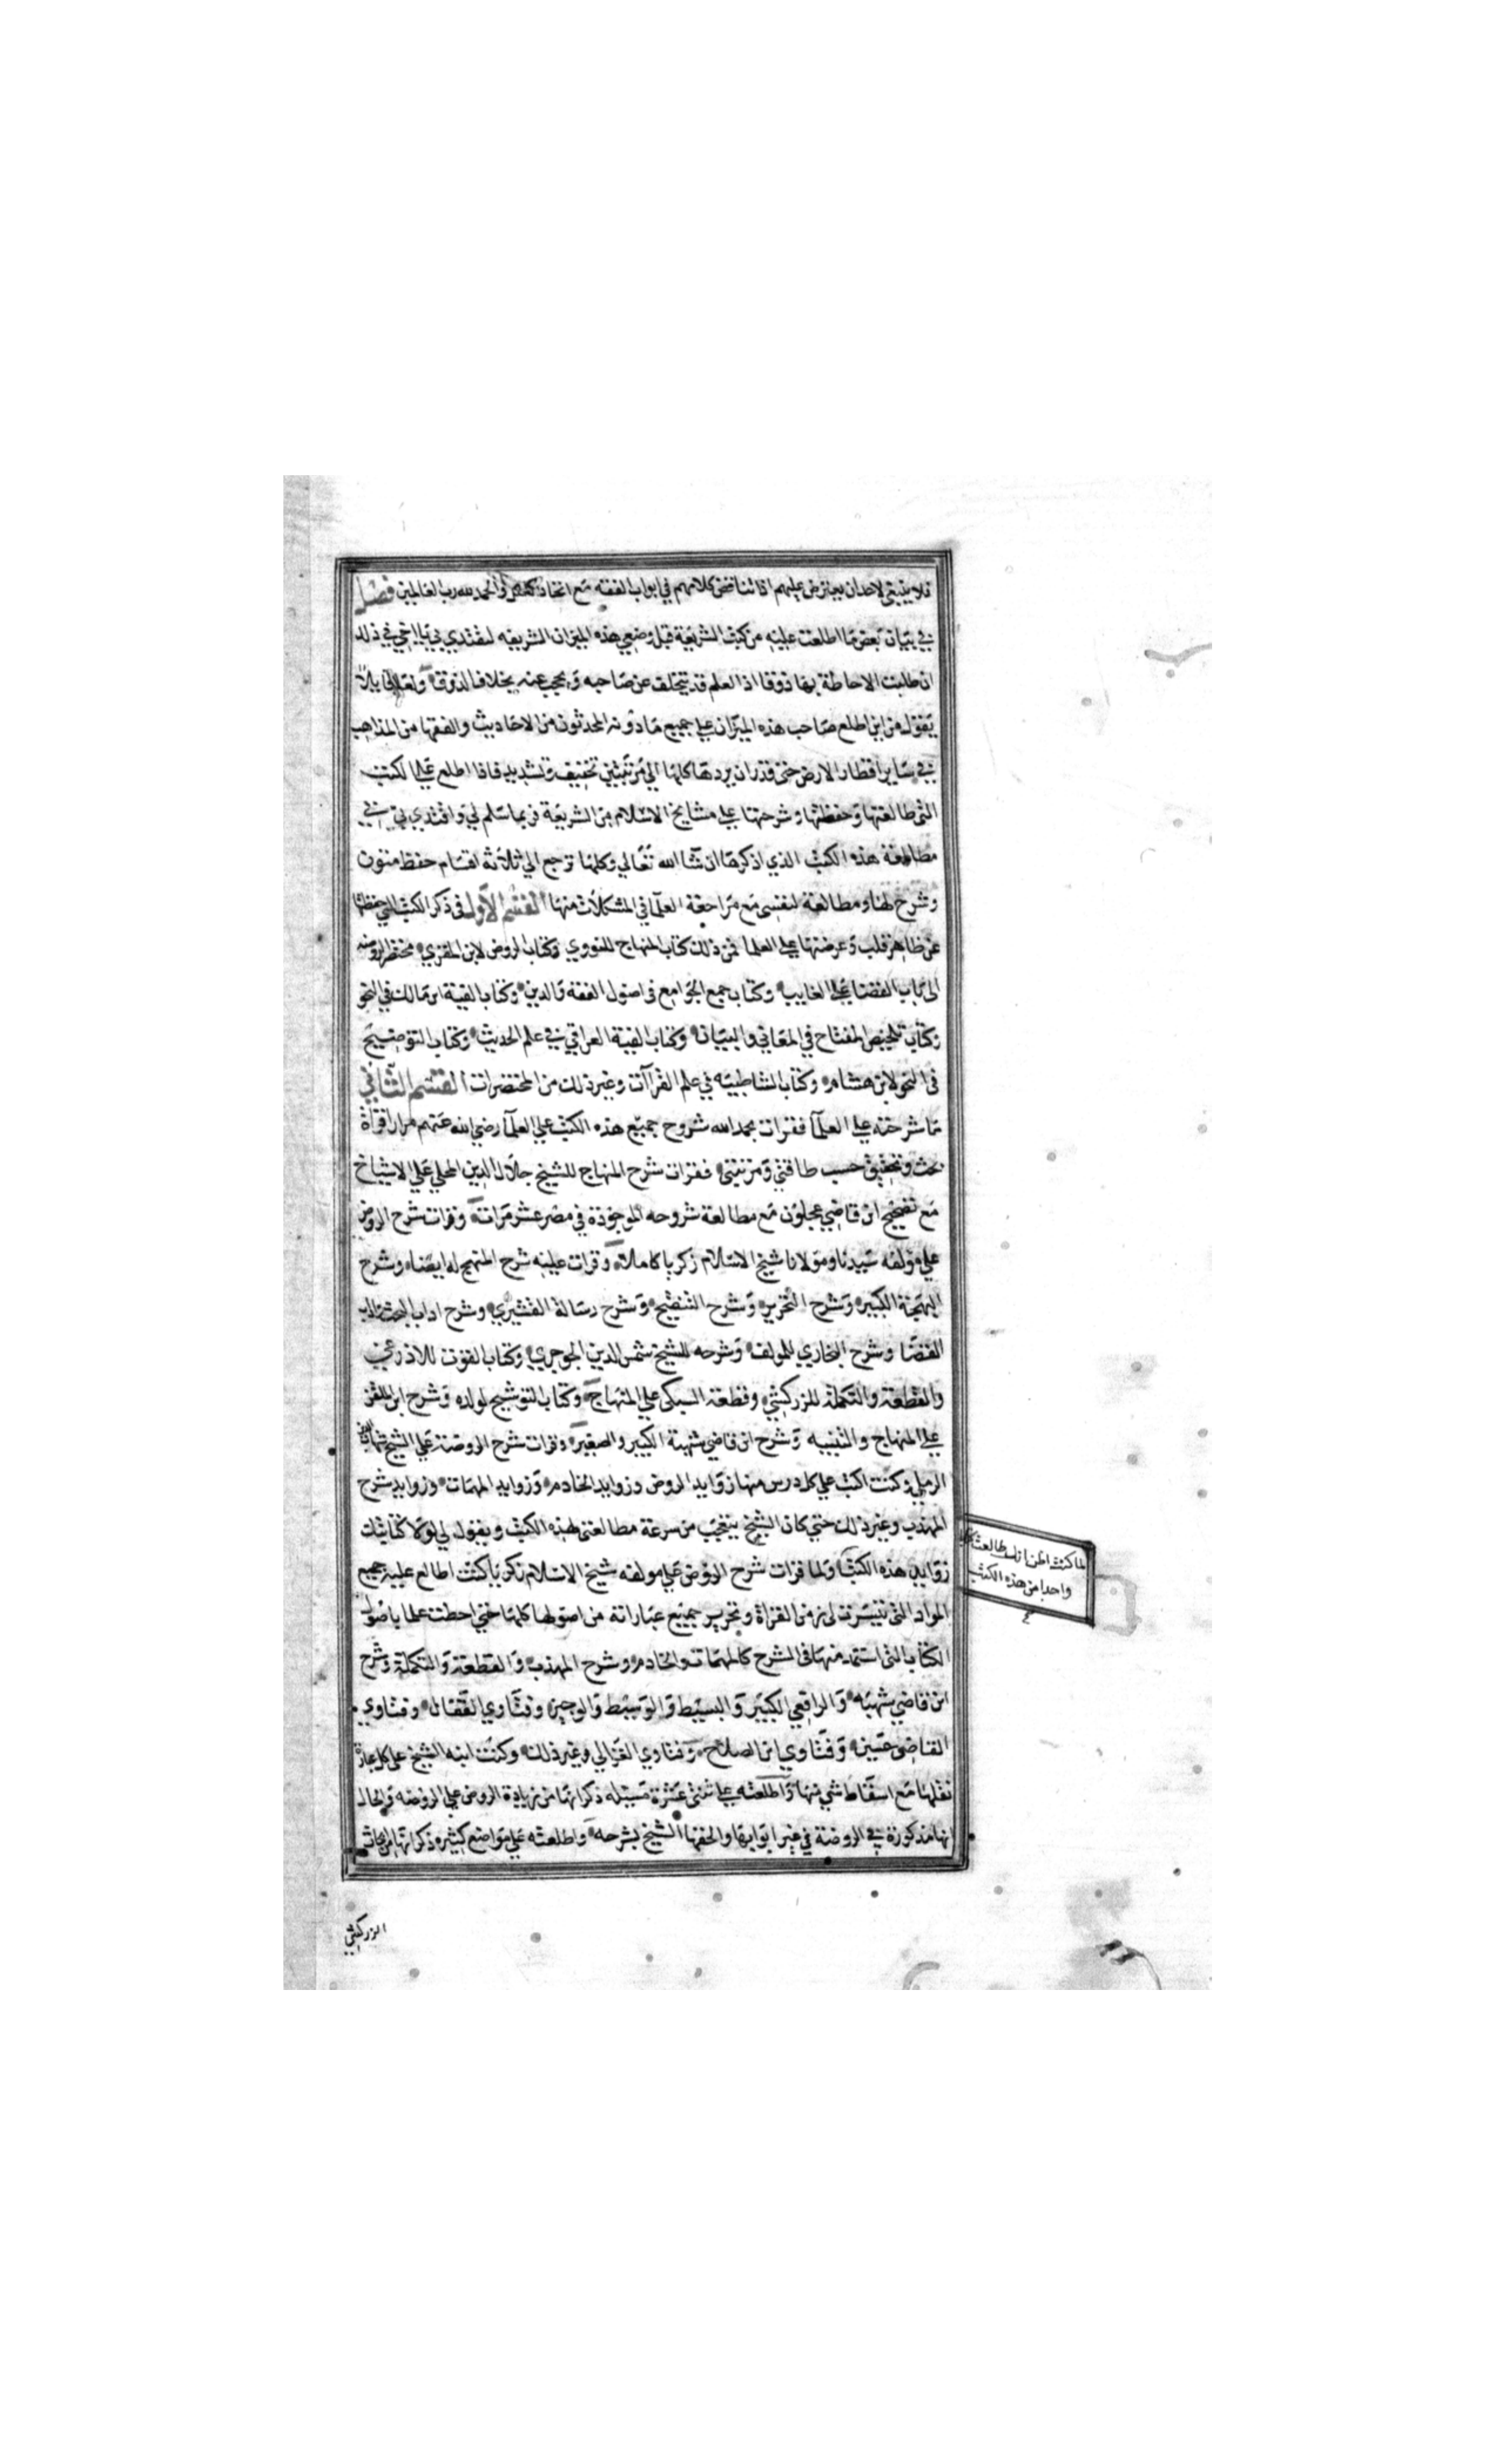 فلا ينبغي لاحد ان يعترض عليهم اذا تناقض كلامهم في ابواب الفقه مع اتحاد والحمد لله رب العالمين فصل
في بيان بعض ما اطلعت عليه من كتب الشريعة قبل وضعي هذه الميزان الشريفه ليقتدي بي يااخي في ذلك
ان طلبت الاحاطة بها ذوقا اذ العلم قد يتخلف عن صاحبه ويحجب عنه بخلاف الذوق ولعل قايلا
يقول من اين اطلع صاحب هذه الميزان علي جميع ما دونه المحدثون من الاحاديث والفقها من المذاهب
في ساير اقطار الارض حتي قدر ان يردها كلها الي مرتبتين تخفيف وتشديد فاذا اطلع علي الكتب
التي طالعتها وحفظتها وشرحتها علي مشايخ الاسلام من الشريعة فربما سلم لي واقتدي بي في
مطالعة هذه الكتب الذي اذكرها ان شا الله تعالي وكلها ترجع الي ثلاثة اقسام حفظ متون
وشرح لها ومطالعة لنفسي مع مراجعة العلما في المشكلات منها القسم الاول في ذكر الكتب التي حفظتها
عن ظاهر قلب وعرضتها علي العلما فمن ذلك كتاب المنهاج للنووي وكتاب الروض لابن المقري مختصر الروضه
الي باب القضا علي الغايب وكتاب جمع الجوامع في اصول الفقه والدين وكتاب الفية ابن مالك في النحو
وكتاب تلخيص المفتاح في المعاني والبيان وكتاب الفية العراقي في علم الحديث وكتاب التوضيح
في النحو لابن هشام وكتاب الشاطبيه في علم القراآت وغير ذلك من المختصرات القسم الثاني
ما شرحته علي العلما فقرات بحمد الله شروح جميع هذه الكتب علي العلما رضي الله عنهم مرارا قراة
بحث وتحقيق حسب طاقتي ومرتبتي فقرات شرح المنهاج للشيخ جلال الدين المحلي علي الاشياخ
مع تصحيح ابن قاضي عجلون مع مطالعة شروحه الموجودة في مصر عشر مرات وقرات شرح الروض
علي مولفه سيدنا ومولانا شيخ الاسلام زكريا كاملا وقرات عليه شرح المنهج له ايضا وشرح
البهجة الكبير وشرح التحرير وشرح التنقيح وشرح رسالة القشيري وشرح اداب البحث واداب
القضا وشرح البخاري للمولف وشرحه للشيخ شمس الدين الجوجري وكتاب القوت للاذرعي
والقطعة والتكملة للزركشي وقطعة السبكي علي المنهاج وكتاب التوشيح لولده وشرح ابن الملقن
علي المنهاج والتنبيه وشرح ابن قاضي شهبة الكبير والصغير وقرات شرح الروضة علي الشيخ شهاب الدين
الرملي وكنت اكتب علي كل درس منها زوايد الروض وزوايد الخادم وزوايد المهمات وزوايد شرح
المهذب وغير ذلك حتي كان الشيخ يتعجب من سرعة مطالعتي لهذه الكتب ويقول لي لولا كتابتك
زوايد هذه الكتب ولما قرات شرح الروض علي مولفه شيخ الاسلام زكريا كنت اطالع عليه جميع
المواد التي تيسرت لي زمن القراة وتحرير جميع عباراته من اصولها كلها حتي احطت علما باصول
الكتاب التي استمد منها في الشرح كالمهمات والخادم وشرح المهذب والقطعة والتكملة وشرح
ابن قاضي شهبه والرافعي الكبير والبسيط والوسيط والوجيز وفتاوي القفال وفتاوي
القاضي حسين وفتاوي ابن الصلاح وفتاوي الغزالي وغير ذلك وكنت انبه الشيخ علي كل عبارة
نقلها مع اسقاط شي منها واطلعته علي ثنتي عشرة مسيله ذكر انها من زيادة الروض علي الروضه والحال
انها مذكورة في الروضة في غير ابوابها والحقها الشيخ بشرحه واطلعته علي مواضع كثيره ذكر انها من ابحاث
لما كنت اظن انك طالعت كتابا
واحدا من هذه الكتب
الزركشي